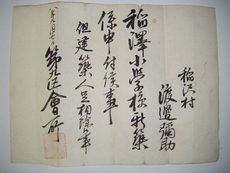 稲沢村
渡邉彌助
稲澤小學校新築
係申付候事
但建築人足相除候事
第九区會所